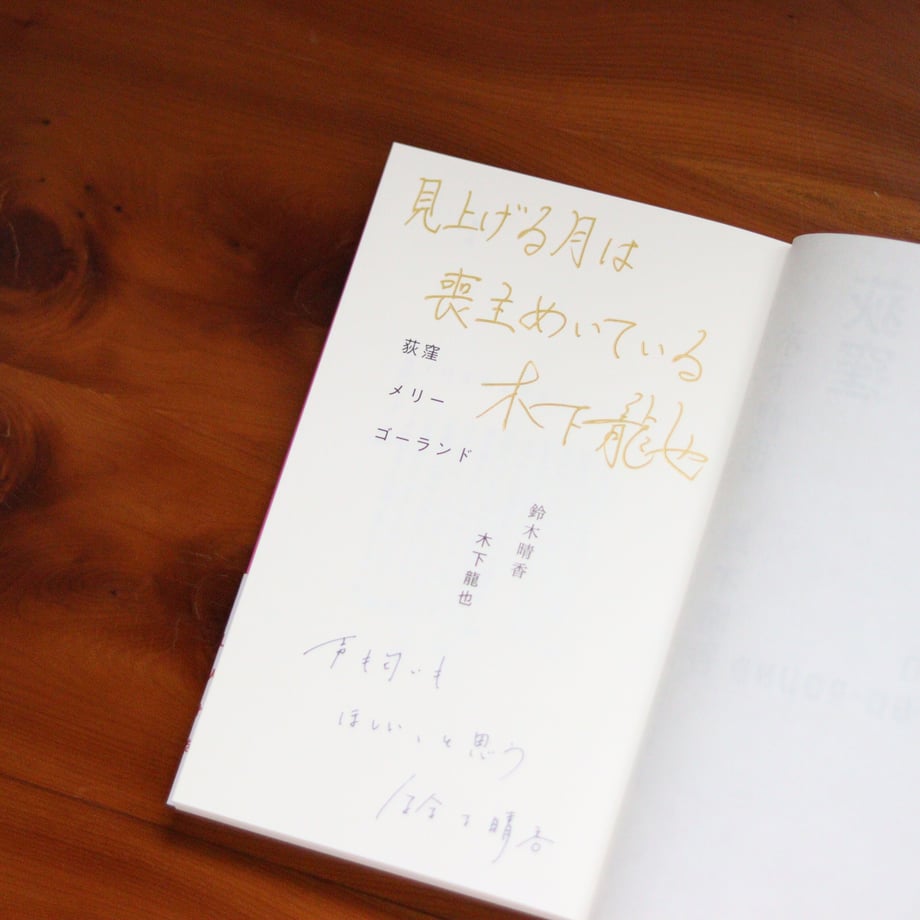 見上げる月は
喪主めいている
木下龍也
荻窪
メリー
ゴーランド
鈴木晴香
木下龍也
声も匂いも
ほしい、と思う
鈴木晴香